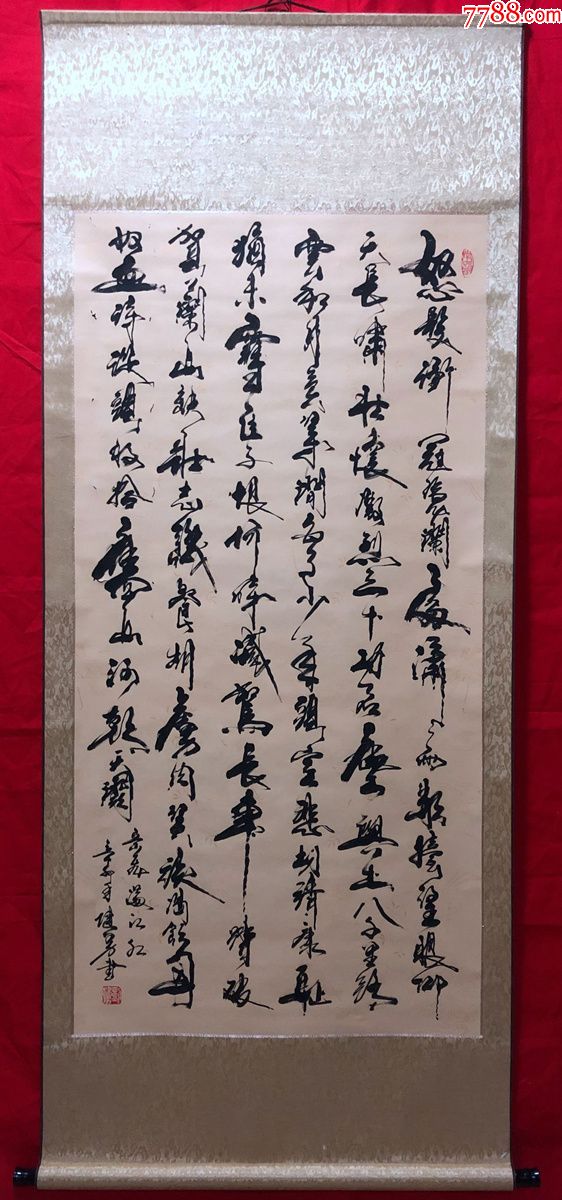 7788.com
怒髮衝冠憑闌處瀟〻雨歇擡望眼仰
天長嘯壯懷激烈三十功名塵與土八千里路
雲和月莫等閒白了少年頭空悲切靖康恥
猶未雪臣子恨何時滅駕長車踏破
賀蘭山缺壯志飢餐胡虜肉笑談渴飲匈
奴血待從頭收拾舊山河朝天闕
岳飛滿江紅
書